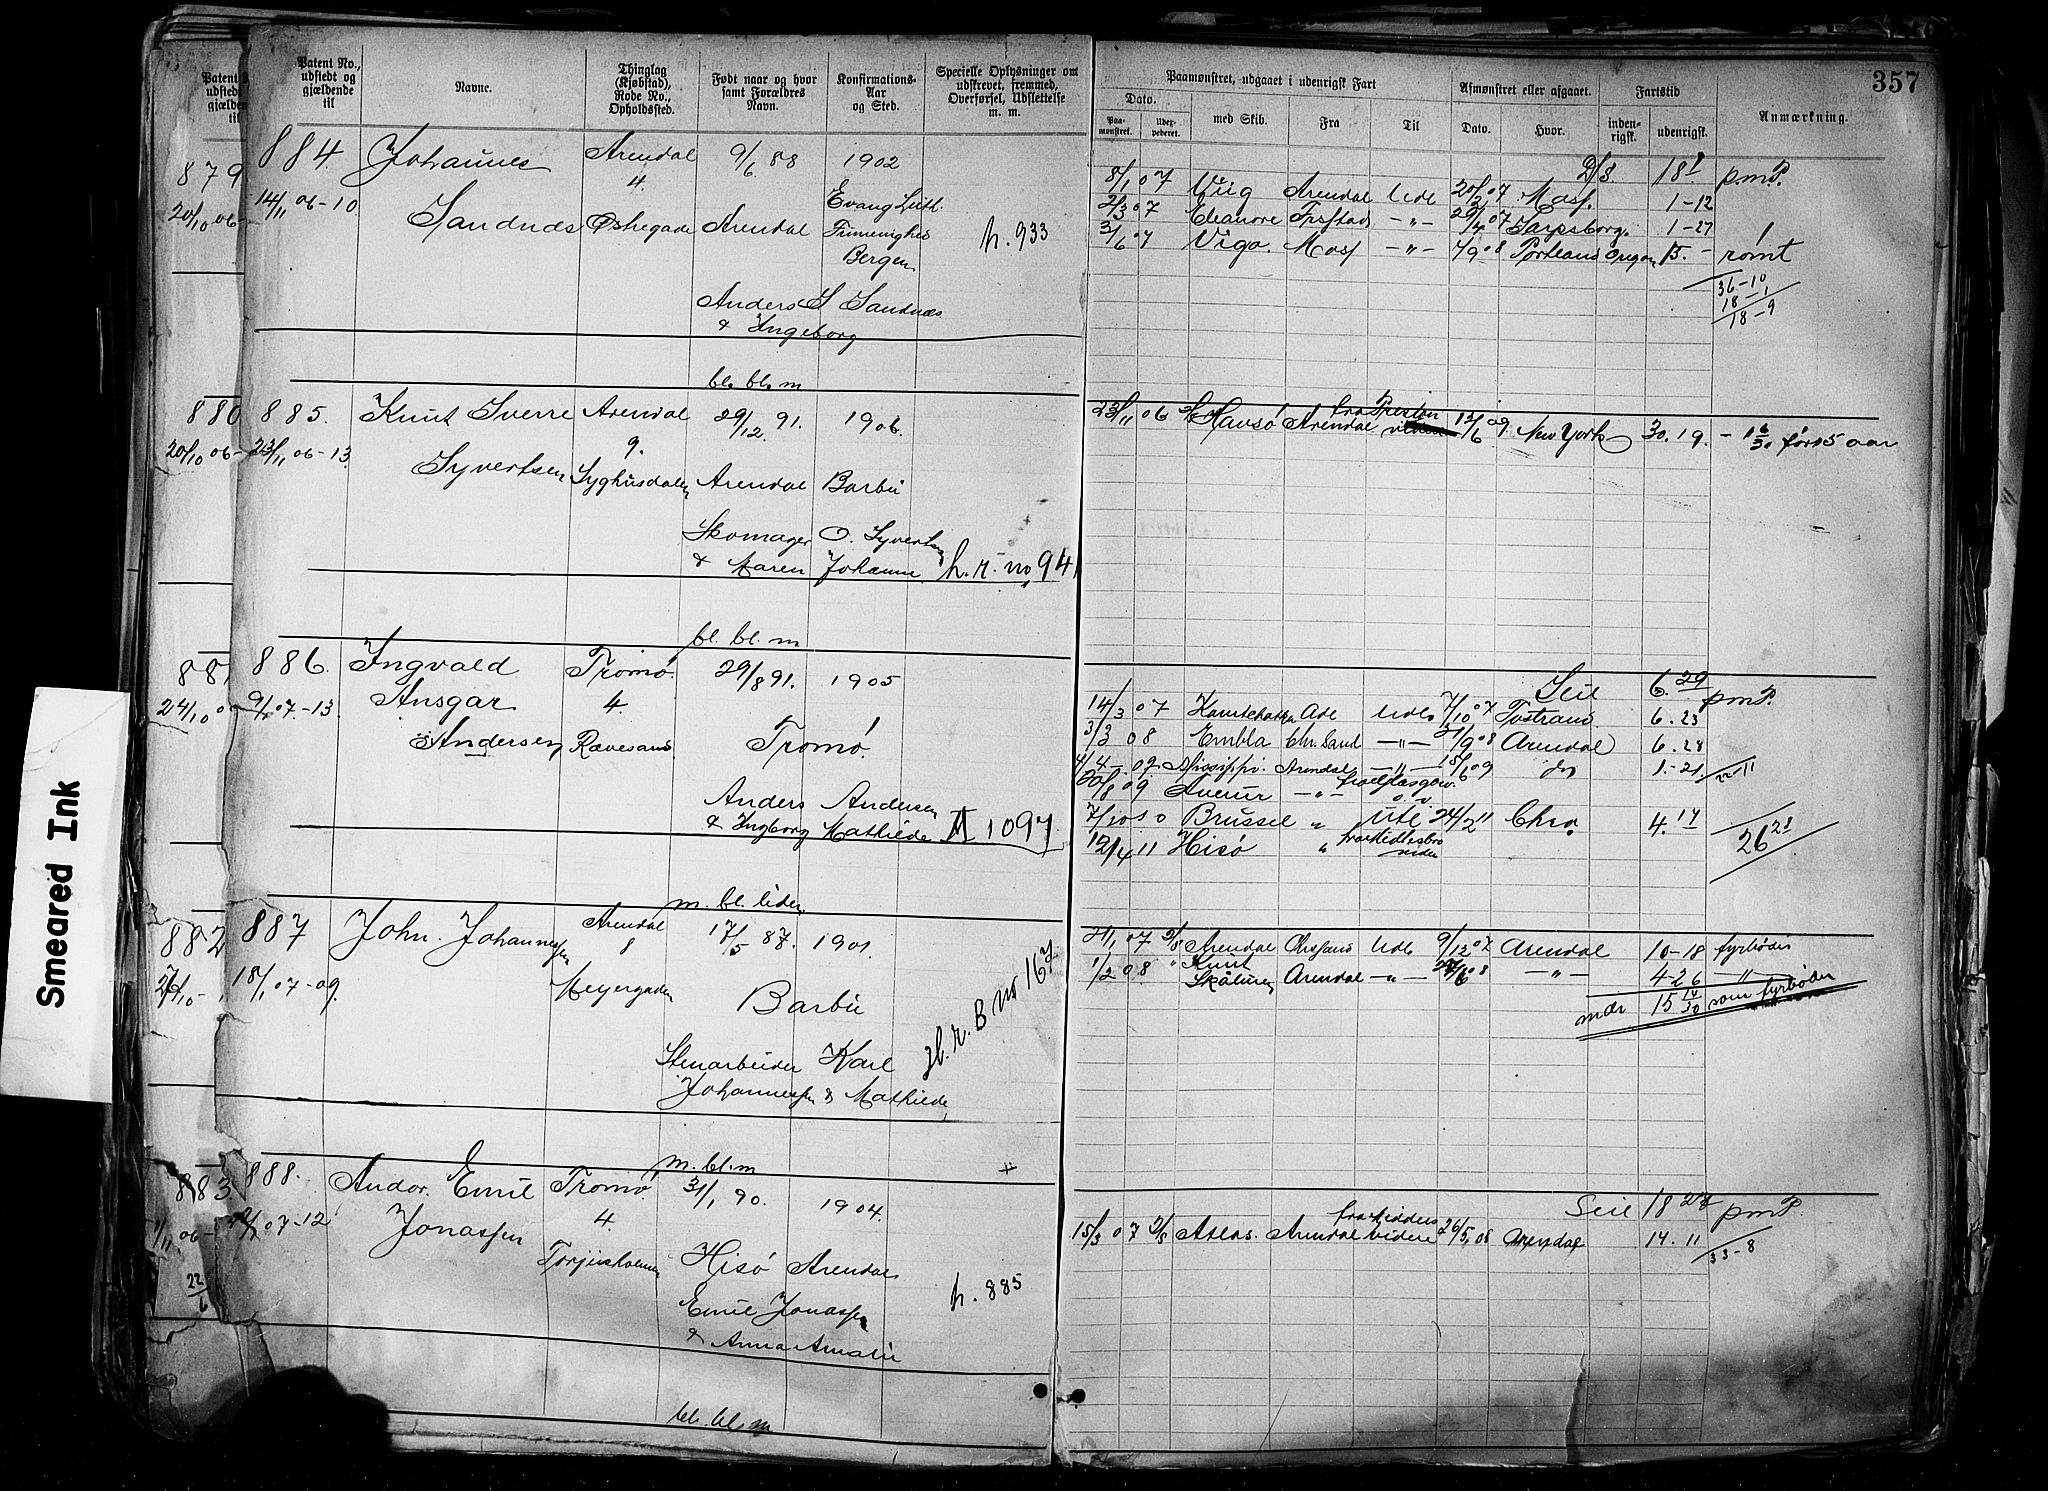 Smeared Ink
357
Patent No., udstedt og gjældende til
Navne.
Thinglag (Kjøbstad), Rode No., Opholdssted.
Født naar og hvor samt Forældres Navn.
Konfirmations-Aar og Sted.
Specielle Oplysninger om udskrevet, fremmed, Overførsel, Udslettelse m. m.
Paamønstret, udgaaet i udenrigsk Fart
Dato.
Paamønstret.
Udexpederet.
med Skib.
Fra
Til
Afmønstret eller afgaaet.
Dato.
Hvor.
Fartstid
indenrigsk.
udenrigsk.
Anmærkning.
879
20/10 06-
880
20/10 06-
881
24/10 0
882
883
22/6
884. Johannes Arendal 9/6 88 1902
14/11 06-10 Sandnæs 4. Østregade Arendal Evang Luth.
Frimenighed
Bergen
h. 933
Anders S Sandnæs
& Ingeborg
bl. bl. m
D/S. 18 1 pmP.
8/1 07 Viig Arendal Udl 20/2 07 Moss. 1-12
2/3 07 Eleanore Frstad -"- 29/4 07 Sarpsborg. 1-27
3/6 07 Vigo. Moss -"- 7/9 08 Portland Oregon 15.- rømt
36-10
18-1
18-9
885. Knut Sverre Arendal 29/12. 91. 1906.
23/11 06-13. Syvertsen 9. Syghusdalen Arendal Barbu
Skomager O. Syvertsen
& Maren Johanne h. r. no 941
bl. bl. m
23/11 06 Havsö Arendal fra Preston 12/6 09 New York 30. 19. - 1 6/30 før 15 aar
886. Ingvald Tromø. 29/8 91. 1905
9/1 07-13. Ansgar 4.
Andersen Rævesand Tromø.
Anders Andersen
& Ingborg Mathilde II 1097
m. bl. lider
Seil 6. 29 pmP.
14/3 07 Kamtchatka Adl Udl. 7/10 07 Tvstrand. 6. 23
3/3 08 Embla Chr. Sand -"- 9. 08 Arendal 6. 28
4/4 09. Missippi. Arendal -"- 15/6 09 do 1. 21. 22-11
8 09 Averur -"- fra Glasgow
o. v
7/10 10 Brussel " Utl 24/2 11 Chra 4. 17
26 28
12/4 11 Hisø " fra Midlesbro
vider
887 John. Johannessen Arendal 17/5 87. 1901.
18/1 07-09. 8 Meyergaden Barbu
Stenarbeider Karl
Johannessen & Mathilde
bl. r. B no 167
m. bl. m
21/1 07 D/S Arendal Chrsand Udl 9/12 07 Arendal 10-18 fyrbøder
1/2 08 " Knut Skåluren Arendal -"- 24/6 08 -"- 4-26 -"-
mdr 15 14/30 som fyrbøder
888. Andor. Emil Tromø. 31/1 90. 1904.
07-12 Jonassen 4.
Torjusholmen Hisø Arendal
Emil Jonassen
& Anna Amalie
h. 885
bl. bl. m
Seil 18 28 pmP
15/3 07 D/S Atlas. Arendal fra videre 26/5. 08 Arendal 14. 11
33-8